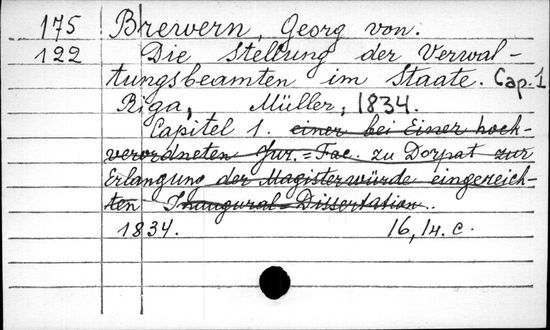 175 Brewern, Georg von.
122 Die Stellung der Verwal-
tungsbeamten im Staate. Cap. 1
Riga, Müller, 1834.
Capitel 1. einer bei Einer hoch-
verordneten Jur.=Fac. zu Dorpat zur
Erlangung der Magisterwürde eingereich-
ten Inaugural=Dissertation.
1834. 16, 14. c.